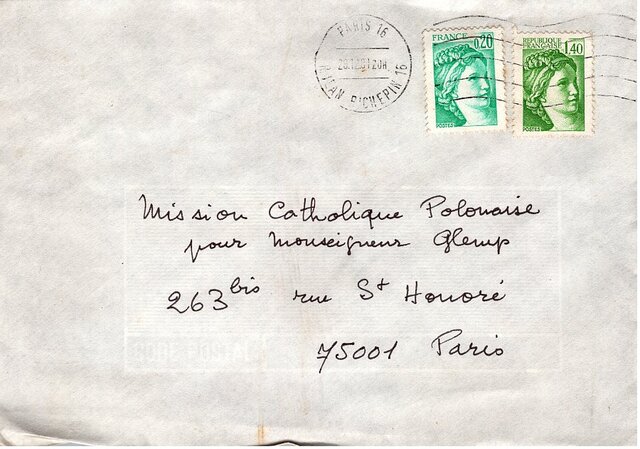 PARIS 16
20H
R. JEAN RICHEPIN 16
FRANCE 0,20
POSTES
REPUBLIQUE FRANÇAISE 1,40
POSTES
Mission Catholique Polonaise
pour Monseigneur Glemp
263 bis rue St Honoré
75001 Paris